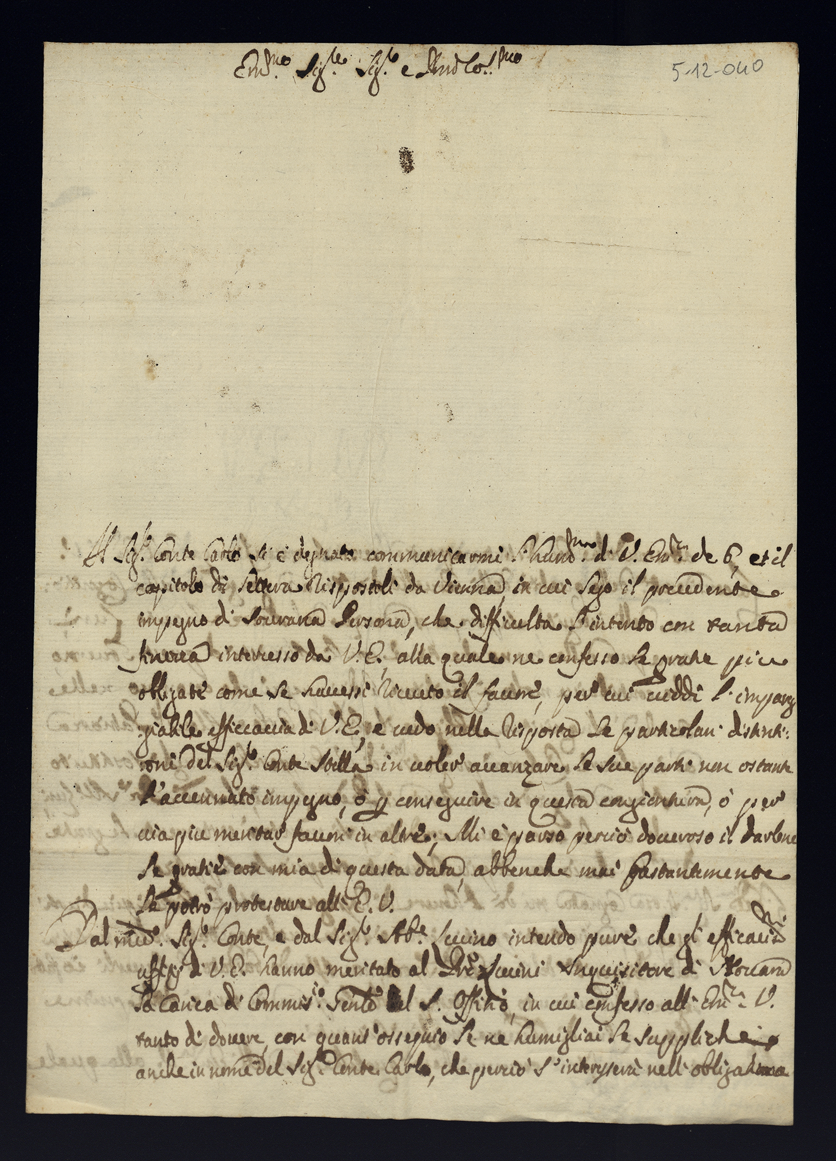 Em.mo Sig.re Sig.re e Pnd Col.mo
5-12-040
Il Sig.r Conte Carlo si è degnato communicarmi l'hum.ma di V. Em.za de 6, et il
capitolo di lettera rispostoli da Vienna in cui sego il precedente
impegno di Sovrana Persona, che difficolta l'intento con tanta
finezza interesso da V. E. alla quale ne confesso le gratie piu
obligate come se havessi riceuto il favore, per cui viddi l'impare
giabile efficaccia di V. E., e vedo nella risposta le particolari distinti:
tioni del Sig.r Conte Stella in voler avanzare le sue parti non ostante
l'accennato impegno, ò p conseguire in questa congiontura, ò per
via piu meritar favori in altre; Mi è parso perciò doveroso il darlene
le gratie con mia di questa data, abbenche mai bastantemente
le potrò protestare all' E. V.
Dal med.o Sig.r Conte, e dal Sig.r Ab.e intendo pure che gl'efficaci
uffizj di V. E. hanno meritato al Pre Inquisitore di
la Carica di Commis.io Gen.le del S. Offitio, in cui confesso all' Em.za V.
tanto di dovere, con quant'ossequio le ne humigliai le suppliche
anche in nome del Sig.r Conte Carlo, che perciò s' nell'obligatione